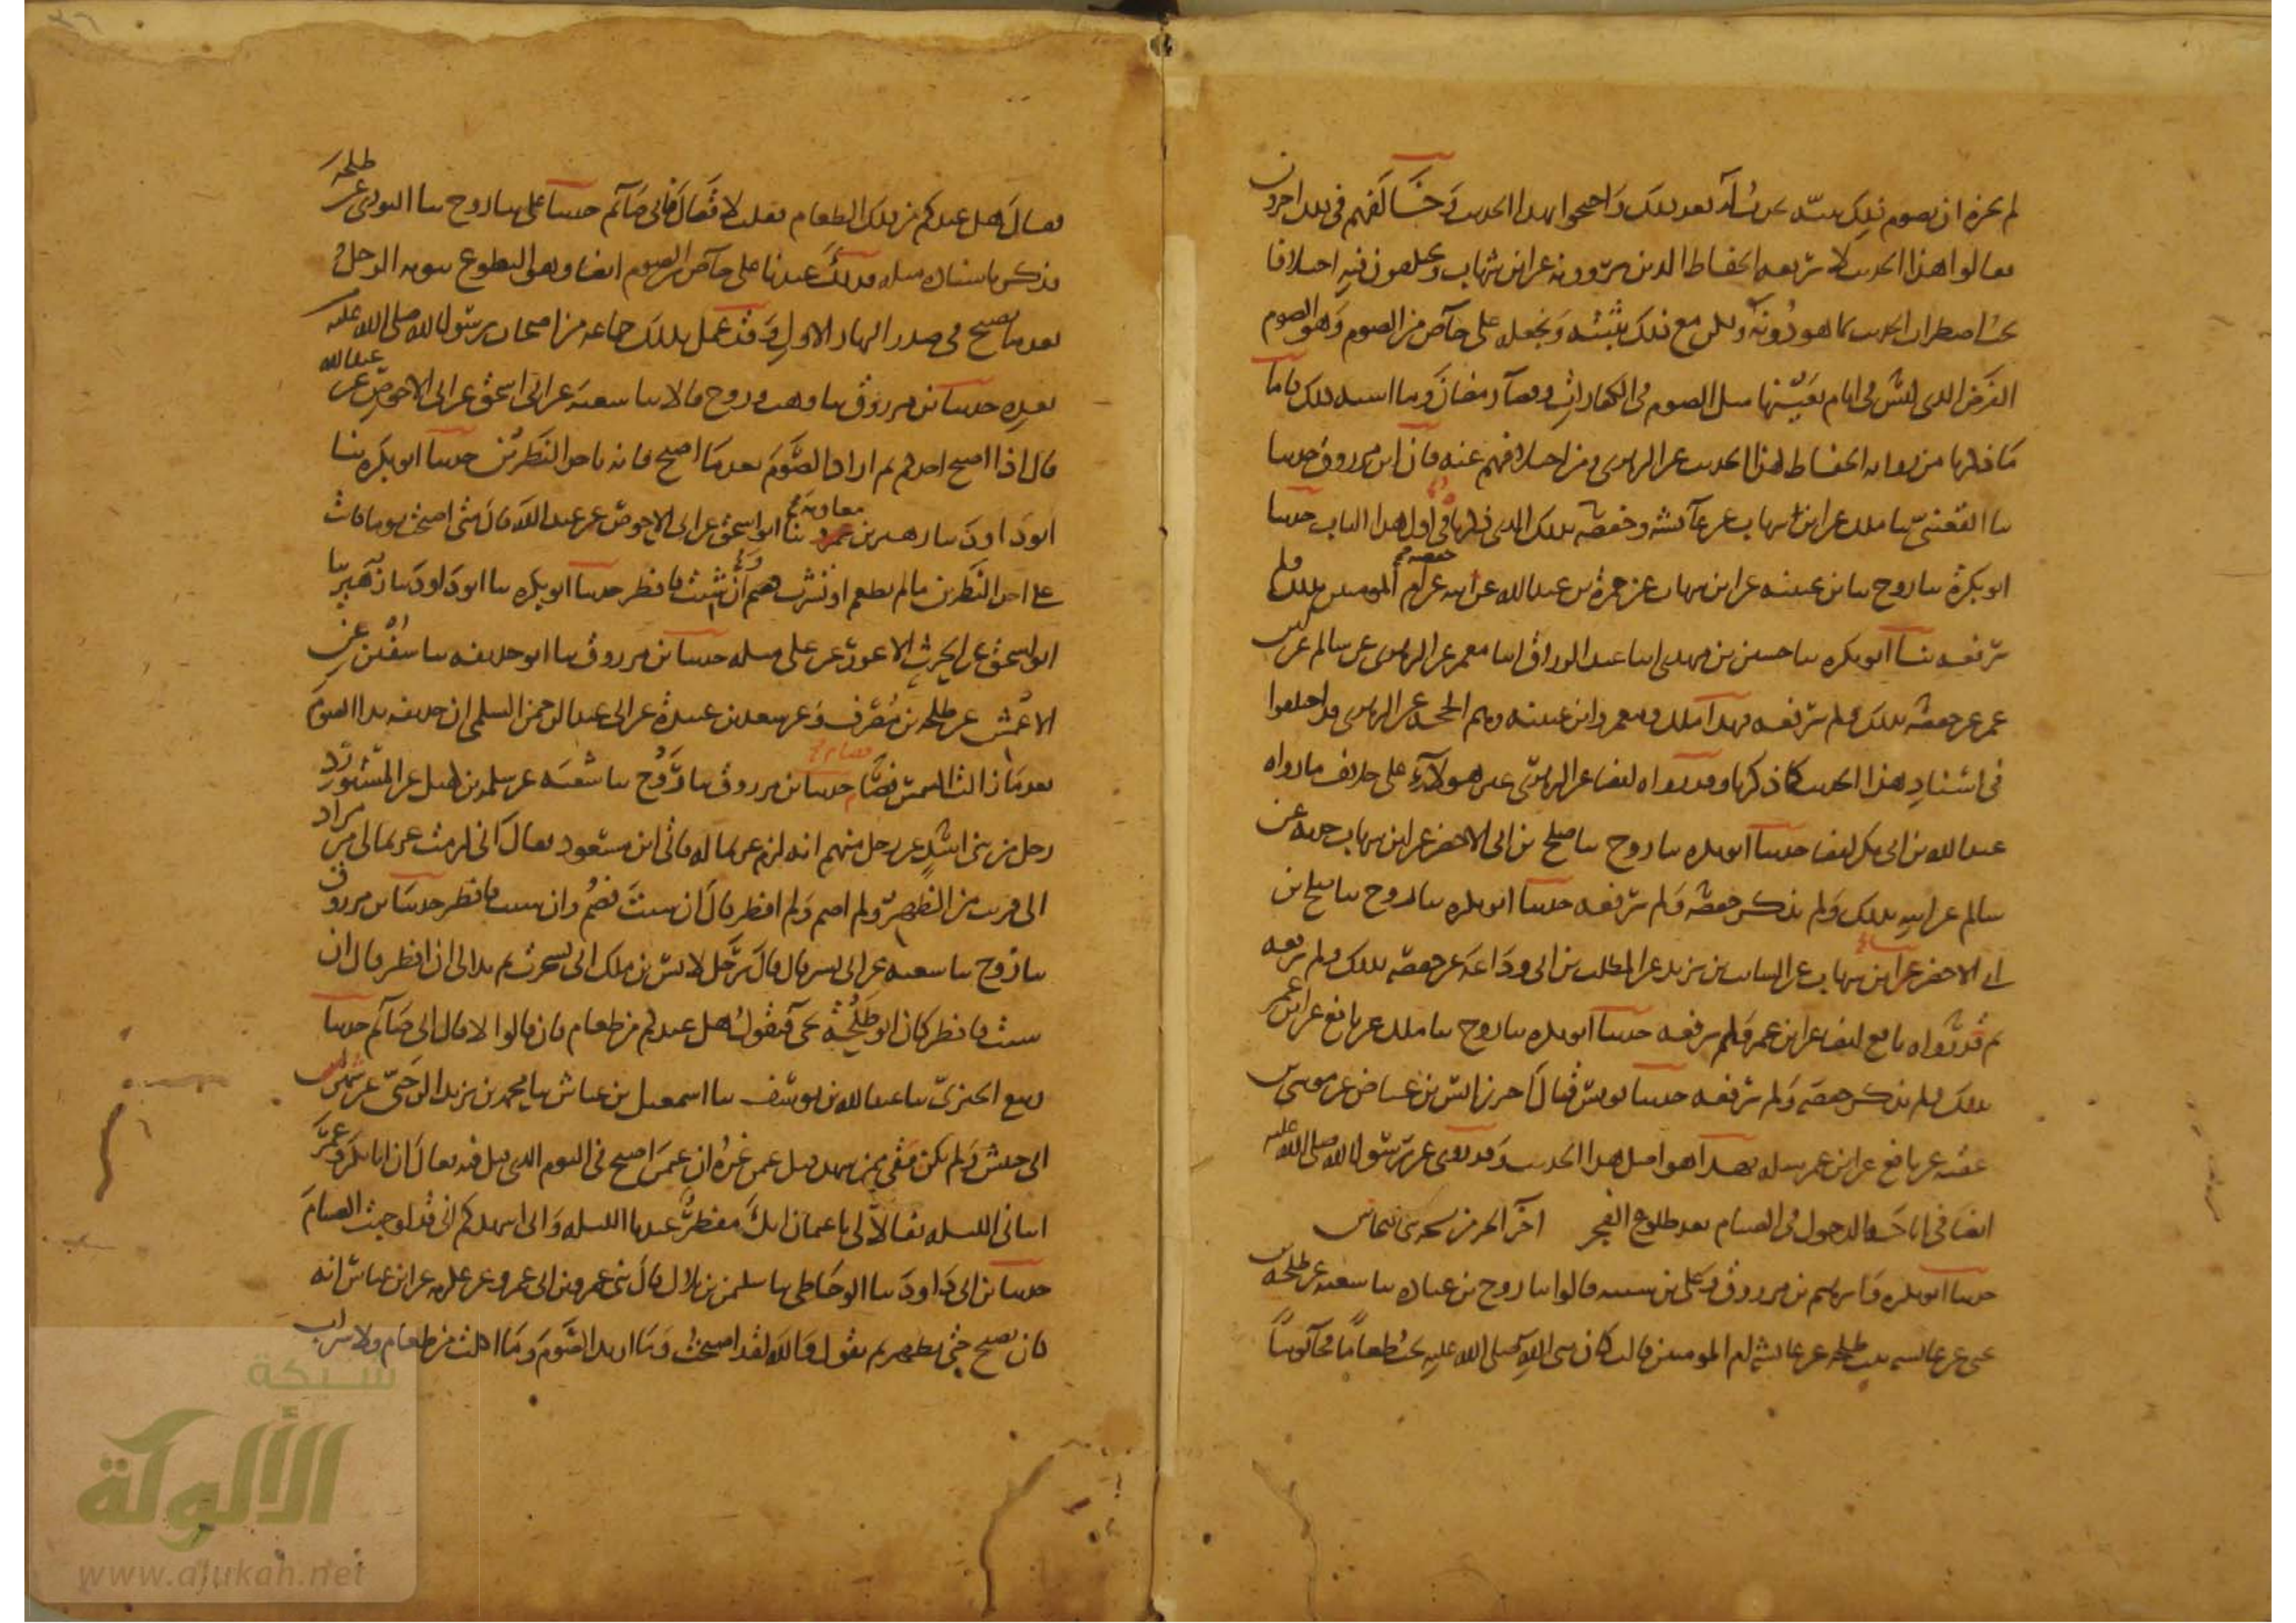 لم يجزه ان يصوم ذلك بنيه تحدث له بعد ذلك واحتجوا بهذا الحديث وخالفهم في ذلك اخرون
فقالوا هذا الحديث لا يرفعه الحفاظ الذين يروونه عن ابن شهاب ويختلفون فيه اختلافا
يوجب اضطراب الحديث بما هو دونه ولكن مع ذلك نثبته ونجعله على خاص من الصوم وهو الصوم
الفرض الذي ليس في ايام بعينها مثل الصوم في الكفارات وقضاء رمضان وما اشبه ذلك فاما
ما ذكرنا من رواية الحفاظ لهذا الحديث عن الزهري ومن اختلافهم عنه فان ابن مرزوق حدثنا
ثنا القعنبي ثنا ملك عن ابن شهاب عن عائشه وحفصه بذلك الذي ذكرناه في اول هذا الباب حدثنا
ابو بكرة ثنا روح ثنا ابن عيينه عن ابن شهاب عن حمزة بن عبد الله عن ابيه عن حفصه ام المومنين بذلك ولم
يرفعه حدثنا ابو بكره ثنا حسين بن مهدي ثنا عبد الرزاق انا معمر عن الزهري عن سالم عن ابن
عمر عن حفصه بذلك ولم يرفعه فهذا ملك ومعمر وابن عيينه وهم الحجه عن الزهري قد اختلفوا
في اسناد هذا الحديث كما ذكرنا وقد رواه ايضا عن الزهري غير هولاء على خلاف ما رواه
عبد الله بن ابي بكر ايضا حدثنا ابو بكره ثنا روح ثنا صلح بن ابي الاخضر عن ابن شهاب حدثه عن
سالم عن ابيه بذلك ولم يذكر حفصه ولم يرفعه حدثنا ابو بكره ثنا روح ثنا صلح بن
ابي الاخضر عن ابن شهاب عن السائب بن يزيد عن المطلب بن ابي وداعه عن حفصه بذلك ولم يرفعه
ثم قد رواه نافع ايضا عن ابن عمر ولم يرفعه حدثنا ابو بكره ثنا روح ثنا ملك عن نافع عن ابن عمر
بذلك ولم يذكر حفصه ولم يرفعه حدثنا يونس قال اخبرنا انس بن عياض عن موسى بن
عقبه عن نافع عن ابن عمر مثله فهذا هو اصل هذا الحديث وقد روي عن رسول الله صلى الله عليه
ايضا في اباحه الدخول في الصيام بعد طلوع الفجر اخر الجز من
حدثنا ابو بكره وابرهيم بن مرزوق وعلي بن شيبه قالوا ثنا روح بن عباده ثنا شعبه عن طلحه بن
يحيى عن عائشه بنت طلحه عن عائشه ام المومنين قالت كان نبي الله صلى الله عليه يحب طعاما فجاء يوما
فقال هل عندكم من ذلك الطعام فقلت لا فقال فاني صائم حدثنا علي ثنا روح ثنا الثوري عن طلحه
فذكر باسناده مثله فذلك عندنا على خاص من الصوم ايضا وهو التطوع ينويه الرجل
بعد ما يصبح في صدر النهار الاول وقد عمل بذلك جماعه من اصحاب رسول الله صلى الله عليه
بعده حدثنا بن مرزوق ثنا وهب وروح قالا ثنا شعبه عن ابي اسحق عن ابي الاحوص عن عبد الله
قال اذا اصبح احدكم ثم اراد الصوم بعد ما اصبح فانه باحد النظرين حدثنا ابو بكره ثنا
ابو داود ثنا زهير بن معاويه ثنا ابو اسحق عن ابي الاحوص عن عبد الله قال متى اصبحت يوما فانت
على احد النظرين ما لم تطعم او تشرب فصم وان شئت فافطر حدثنا ابو بكره ثنا ابو داود ثنا زهير ثنا
ابو اسحق عن الحرث الاعور عن علي مثله حدثنا بن مرزوق ثنا ابو حذيفه ثنا سفين عن
الاعمش عن طلحه بن مصرف وعن سعد بن عبيدة عن ابي عبد الرحمن السلمي ان حذيفه بدا له الصوم
بعد ما زالت الشمس فصام حدثنا بن مرزوق ثنا روح ثنا شعبه عن سلمه بن كهيل عن المستورد
رجل من بني اسد عن رجل منهم انه لزم غريما له فاتى ابن مسعود فقال اني لزمت غريما لي من مراد
الى قريب من الظهر ولم اصم ولم افطر قال ان شئت فصم وان شئت فافطر حدثنا بن مرزوق
ثنا روح ثنا شعبه عن ابي بشر قال قال رجل لانس بن ملك اني تسحرت ثم بدا لي ان افطر قال ان
شئت فافطر كان ابو طلحة يجي فيقول هل عندكم من طعام فان قالوا لا قال اني صائم حدثنا
ربيع الجيزي ثنا عبد الله بن يوسف ثنا اسمعيل بن عياش ثنا محمد بن يزيد الرحبي عن
ابي حبيش ولم يكن بقي ممن شهد قتل عمر غيره ان عمر اصبح في اليوم الذي قتل فيه فقال ان ابا بكر وعمر
اتياني الليله فقالا لي يا عثمان انك مفطر عندنا الليله واني اشهدكم اني قد اوجبت الصيام
حدثنا بن ابي داود ثنا الوحاظي ثنا سليمن بن بلال قال ثني عمرو بن ابي عمرو عن عكرمه عن ابن عباس انه
كان يصبح حتى يظهر ثم يقول والله لقد اصبحت وما اريد الصوم وما اكلت من طعام ولا شراب
شبكة
الألوكة
www.alukah.net